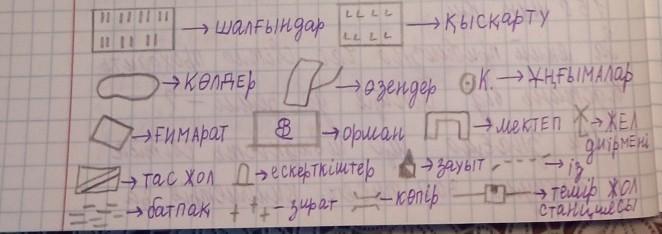 → шалғындар → ҚЫСҚАРТУ
→ КӨЛДЕР → өзендер К. → ҰҢҒЫМАЛАР
→ ҒИМАРАТ → орман → МЕКТЕП → ЖЕЛ диірмені
→ ТАС ЖОЛ → ескерткіштер → зауыт → із
→ батпақ - зират - көпір → темір ЖОЛ станциясы